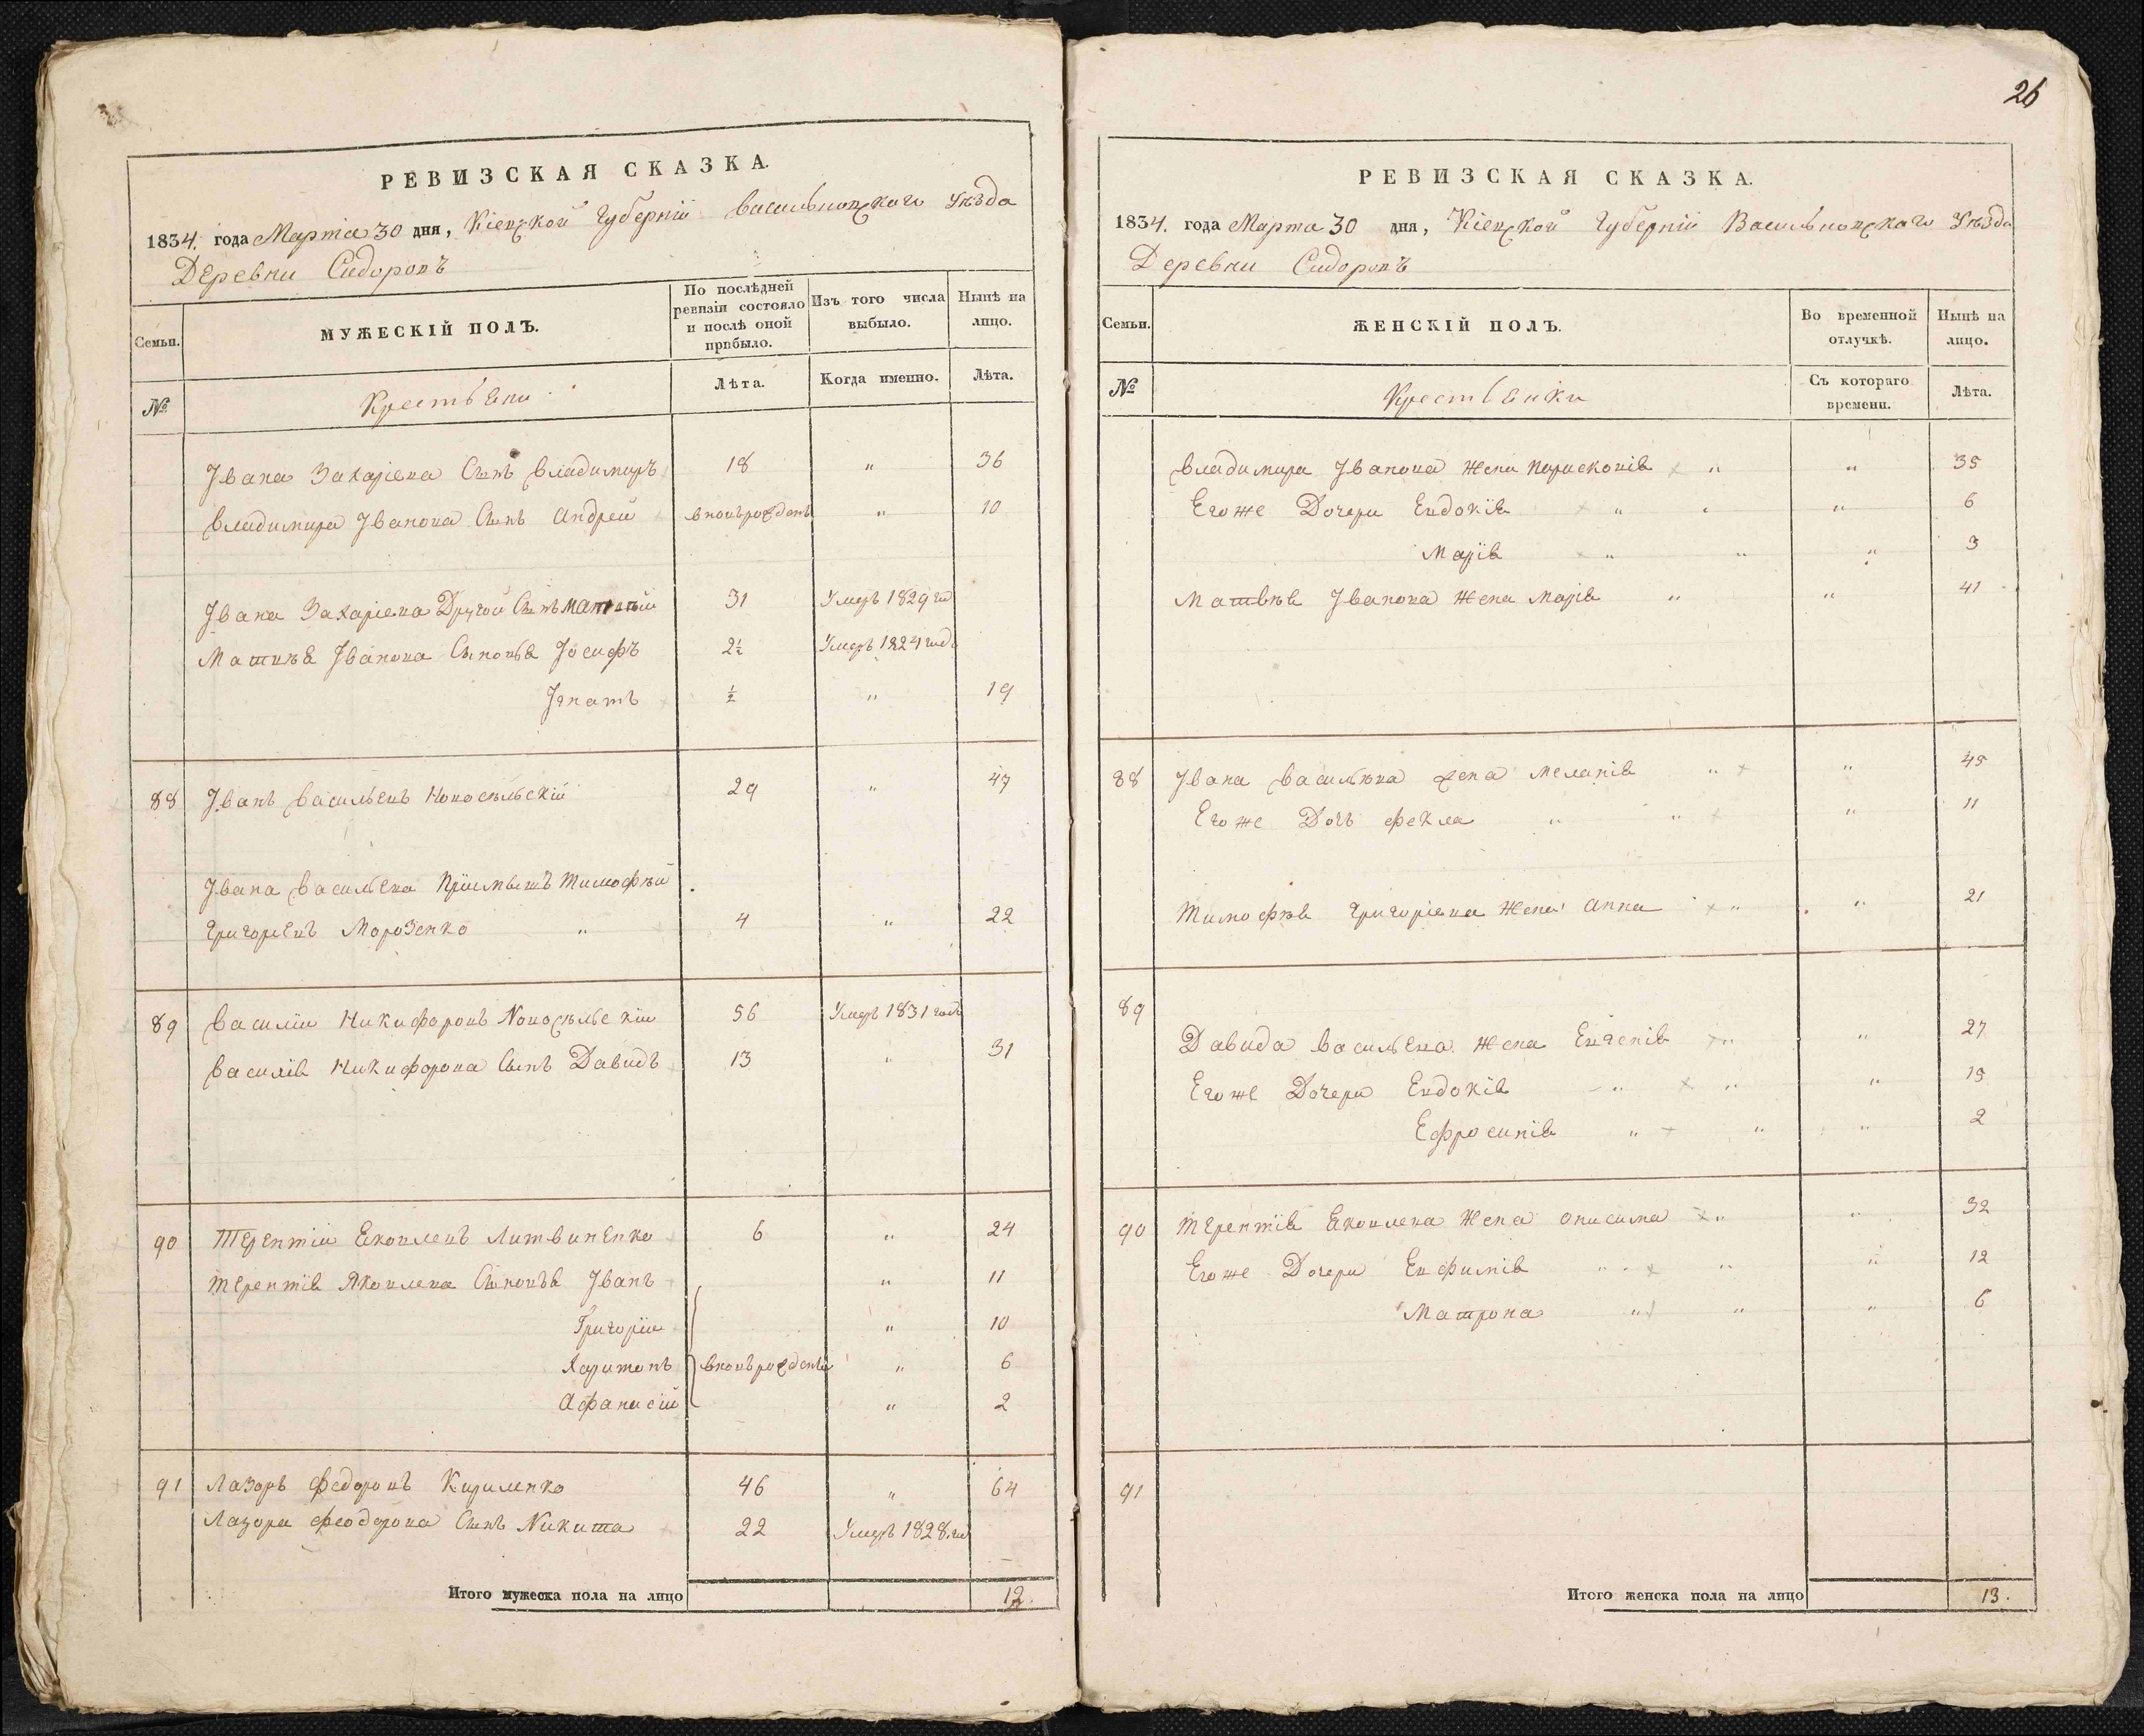 РЕВИЗСКАЯ СКАЗКА.
1834. года Марта 30 дня, Кіевской Губерніи Васильковскаго Уѣзда
Деревни Сидоровъ
Семьи.
МУЖЕСКІЙ ПОЛЪ.
По послѣдней ревизіи состояло и послѣ оной прибыло.
Изъ того числа выбыло.
Нынѣ на лицо.
№
Крестьяни
Лѣта.
Когда именно.
Лѣта.
Івана Захаріева Сынъ Владимиръ 18 " 36
Владимира Іванова Сынъ Андрей вновьрожденъ " 10
Івана Захаріева Другой Сынъ Матвѣй 31 Умеръ 1829 год
Матвѣя Іванова Сыновья Іосифъ 2½ Умеръ 1824 года
Ігнатъ ½ " 19
88 Іванъ Васильевъ Новосѣльскій 29 " 47
Івана Васильева Пріемышъ Тимофѣй
Григорьевъ Морозенко " 4 " 22
89 Василій Никифоровъ Новосѣльскій 56 Умеръ 1831 года
Василія Никифорова Сынъ Давидъ 13 " 31
90 Терентій Яковлевъ Литвиненко 6 " 24
Терентія Яковлева Сыновья Іванъ " 11
Григорій " 10
Харитонъ вновьрожденые " 6
Афанасій " 2
91 Лазоръ Федоровъ Кириленко 46 " 64
Лазоря Феодорова Сынъ Никита 22 Умеръ 1828 год
Итого мужеска пола на лицо 12.
26
РЕВИЗСКАЯ СКАЗКА.
1834. года Марта 30 дня, Кіевской Губерніи Васильковскаго Уѣзда
Деревни Сидоровъ
Семьи.
ЖЕНСКІЙ ПОЛЪ.
Во временной отлучкѣ.
Нынѣ на лицо.
№
Крестьянки
Съ котораго времени.
Лѣта.
Владимира Іванова Жена Парископія " " 35
Егоже Дочери Евдокія " " " 6
Марія " " " 3
Матвѣя Іванова Жена Марія " " 41
88 Івана Васильева жена Меланія " " 45
Егоже Дочь Фекла " " " 11
Тимофѣя Григоріева Жена Анна " " 21
89
Давида Васильева Жена Евгенія " " 27
Егоже Дочери Евдокія " " " 15
Ефросинія " " " 2
90 Терентія Яковлева Жена Онисима " " 32
Егоже Дочери Евфимія " " " 12
Матрона " " " 6
91
Итого женска пола на лицо 13.